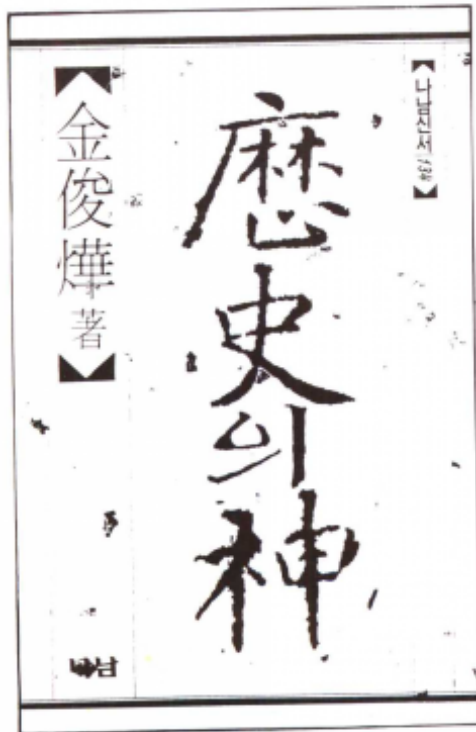 나남신서
歷史의神
金俊燁 著
나남